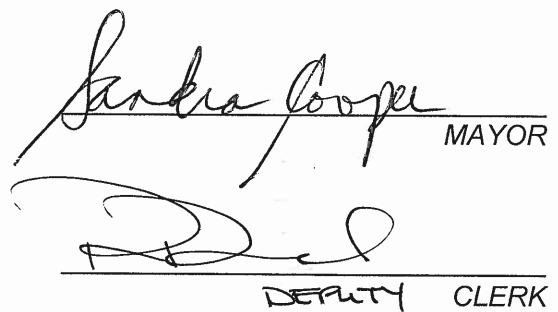 Sandra Cooper
MAYOR
DEPUTY CLERK